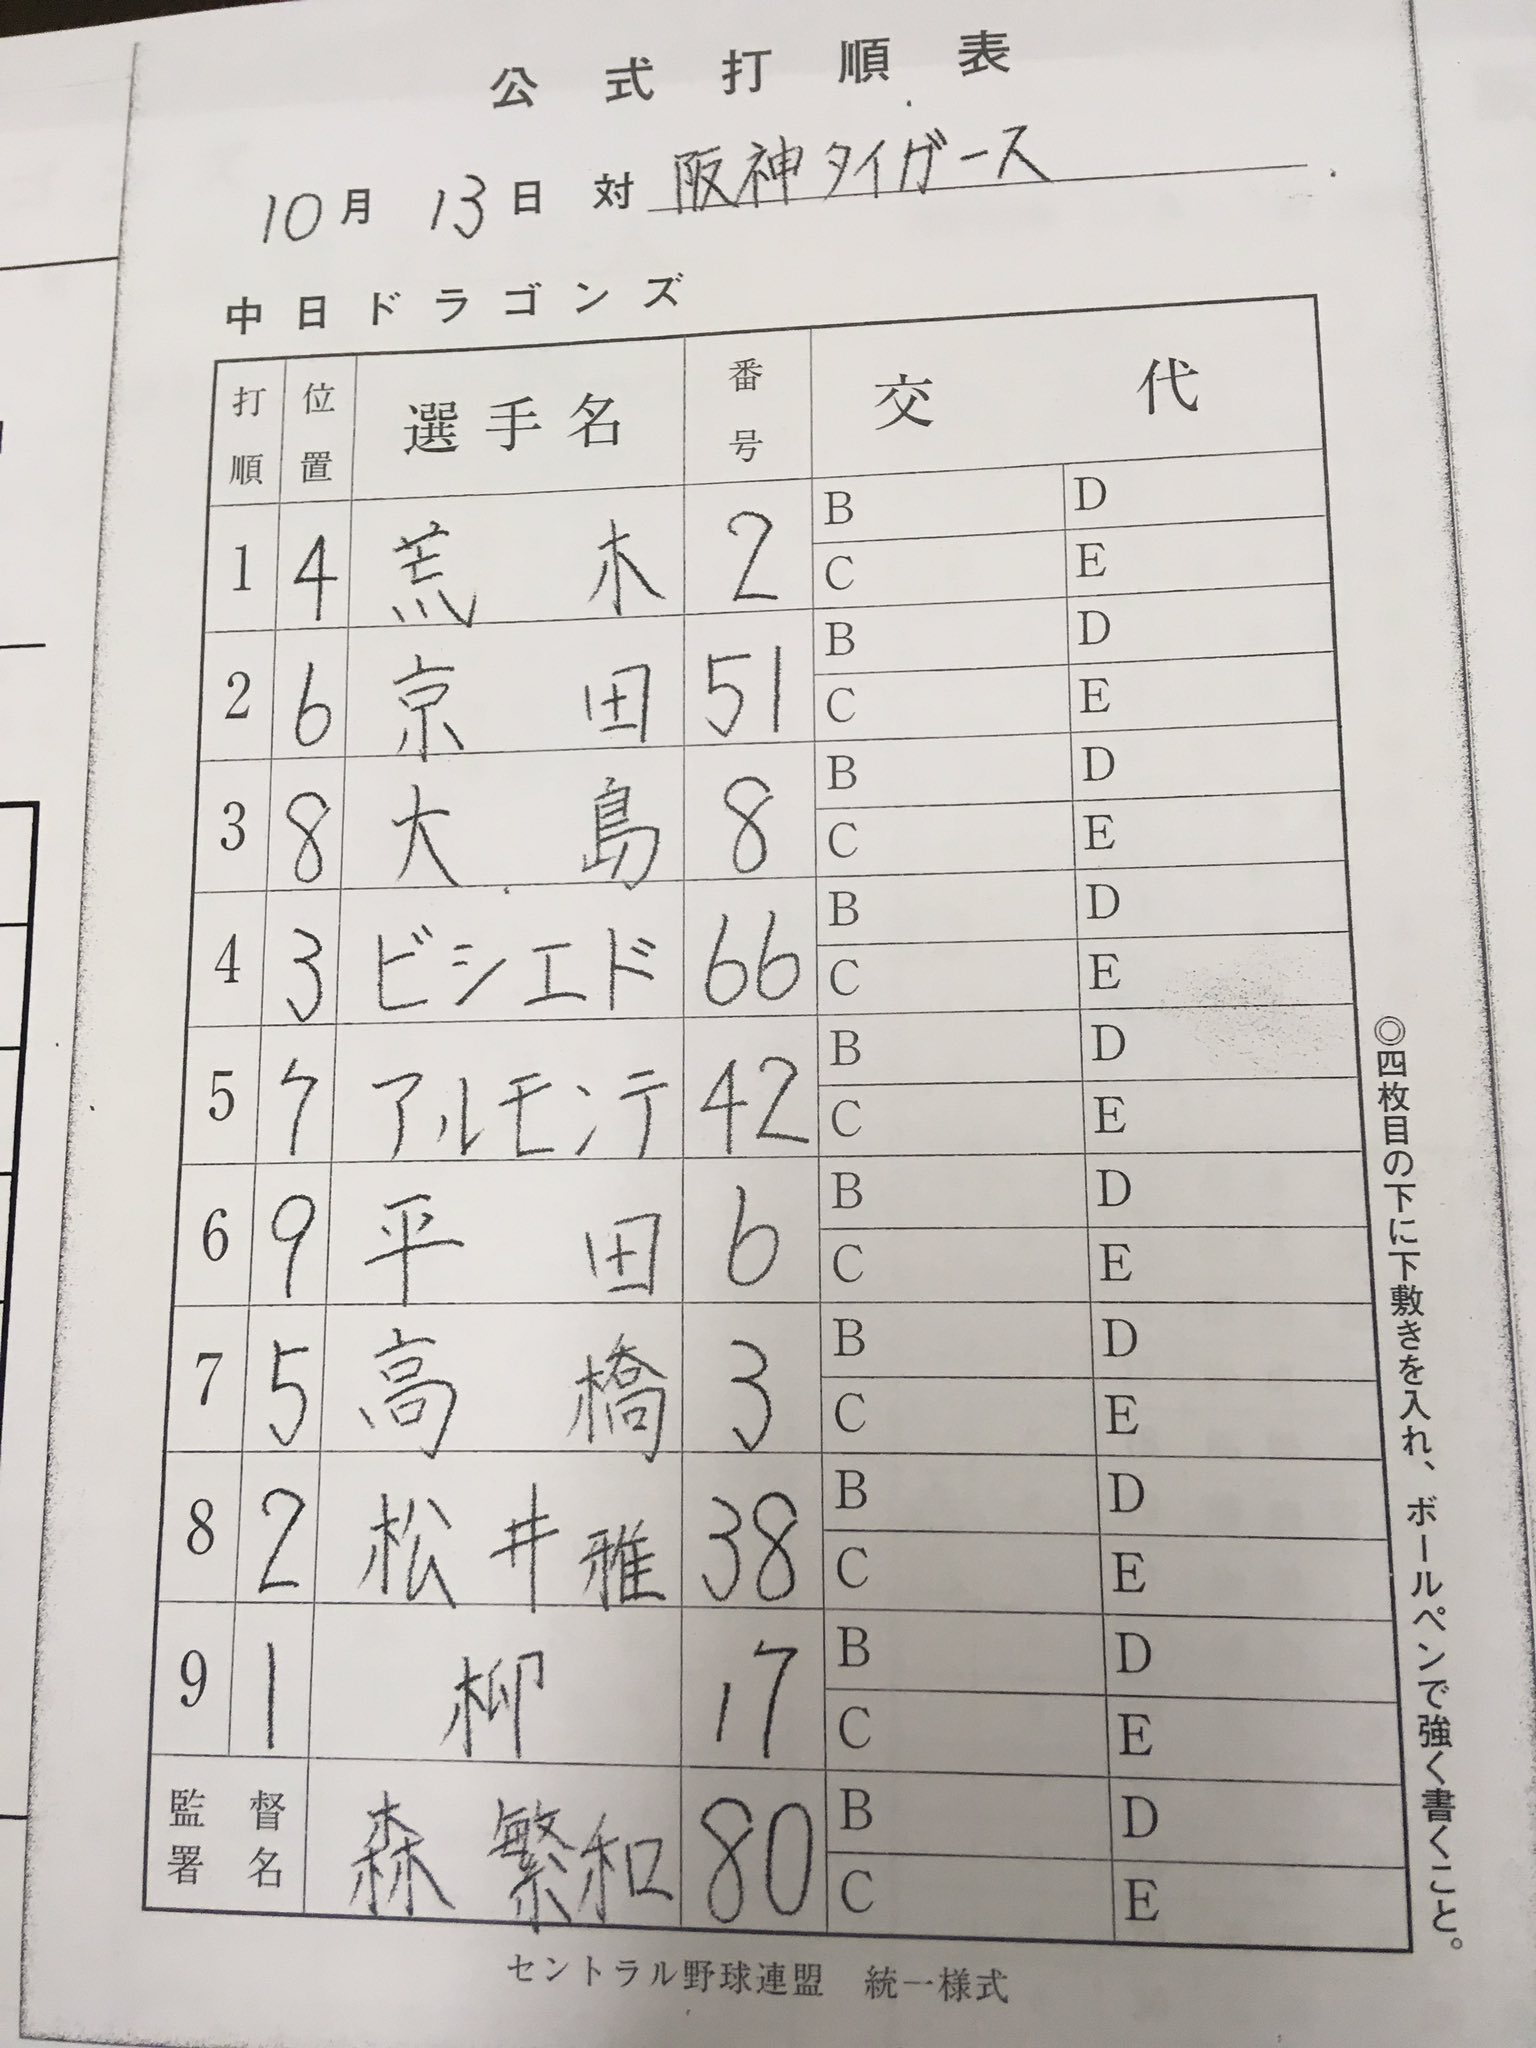 公式打順表
10月 13日 対 阪神タイガース
中日ドラゴンズ
打順 位置 選手名 番号 交代
1 4 荒木 2 B D
C E
2 6 京田 51 B D
C E
3 8 大島 8 B D
C E
4 3 ビシエド 66 B D
C E
5 7 アルモンテ 42 B D
C E
6 9 平田 6 B D
C E
7 5 高橋 3 B D
C E
8 2 松井雅 38 B D
C E
9 1 柳 17 B D
C E
監督署名 森 繁和 80 B D
C E
セントラル野球連盟 統一様式
◎四枚目の下に下敷きを入れ、ボールペンで強く書くこと。